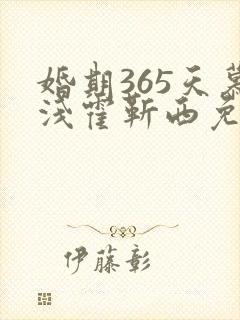 婚期365天慕
浅霍靳西免
伊藤彰